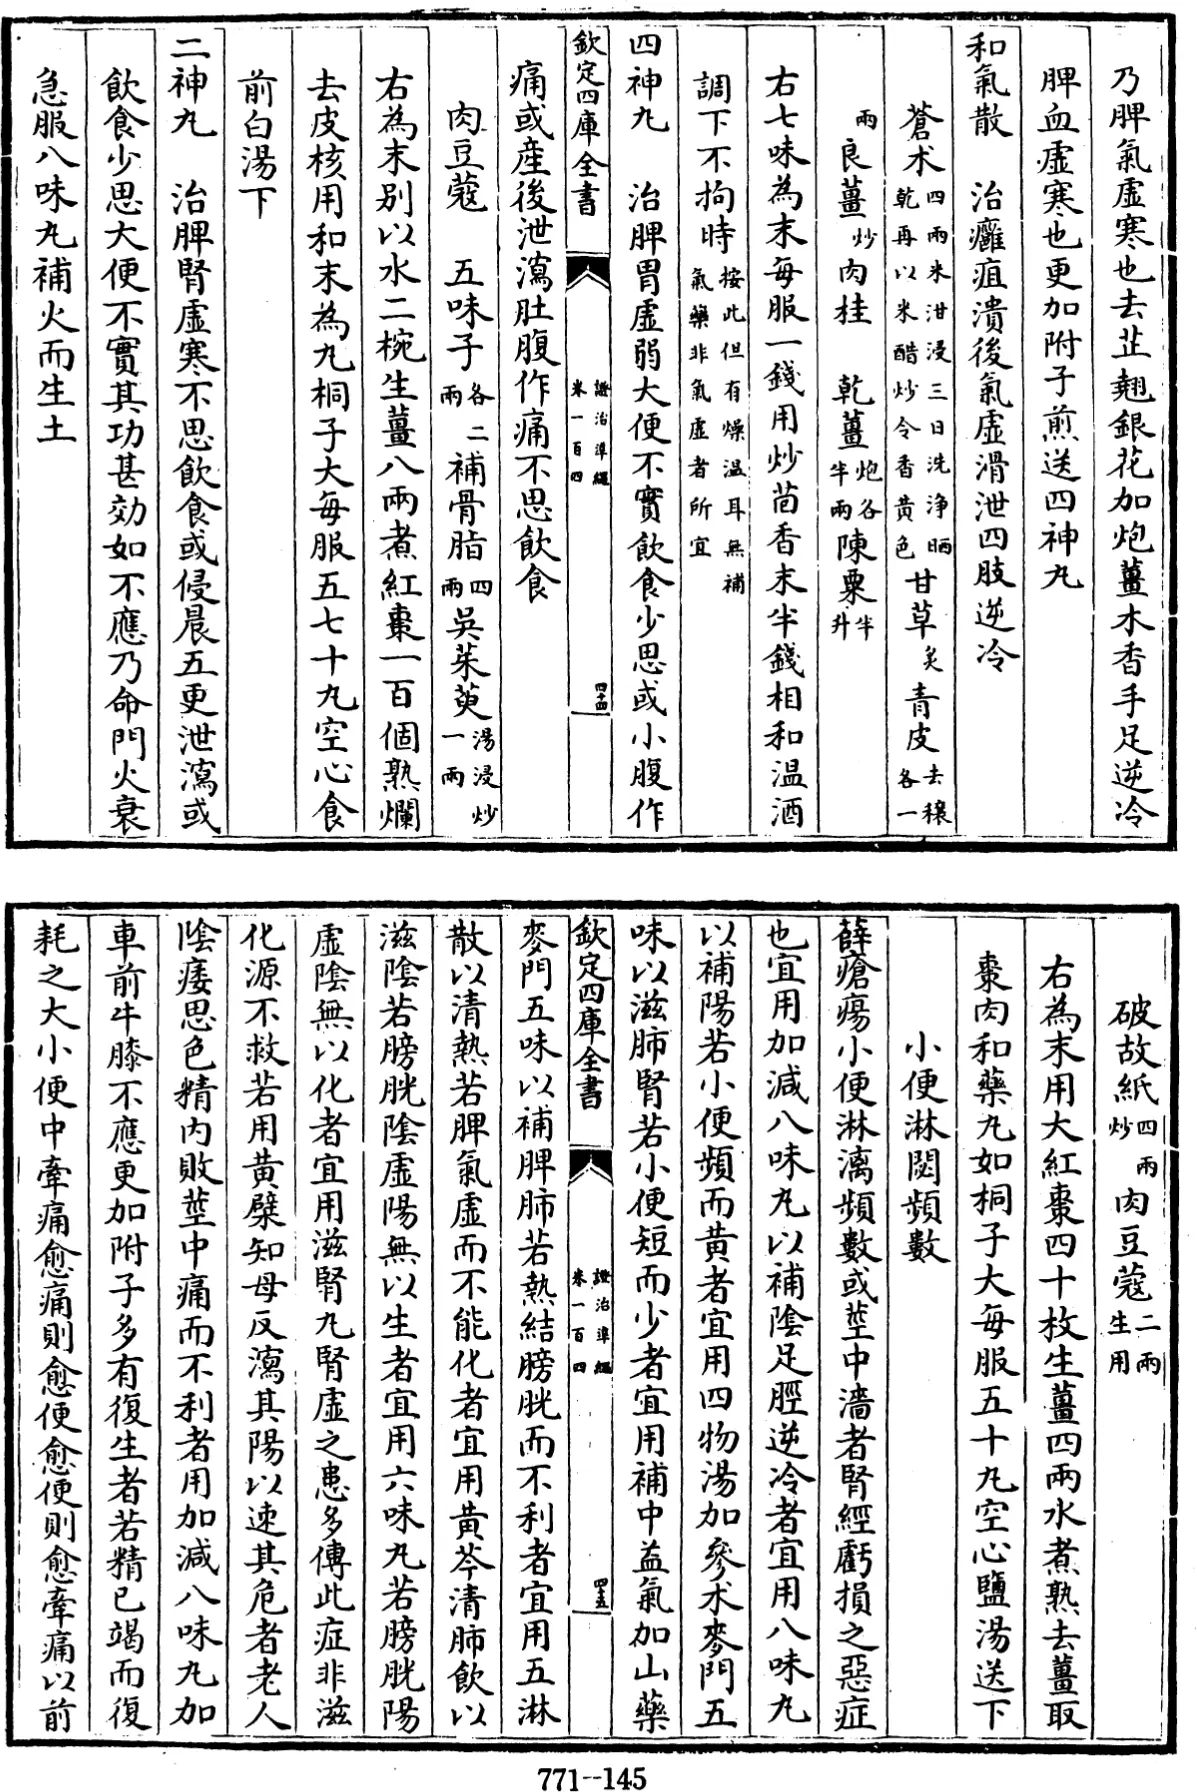 乃脾氣虛寒也去芷翹銀花加炮薑木香手足逆冷
脾血虛寒也更加附子煎送四神丸
和氣散　治癰疽潰後氣虛滑泄四肢逆冷
蒼术四兩米泔浸三日洗淨晒乾再以米醋炒令香黃色甘草炙青皮去穰各一
兩良薑炒肉桂　乾薑炮各半兩陳粟半升
右七味為末每服一錢用炒茴香末半錢相和温酒
調下不拘時按此但有燥温耳無補氣藥非氣虛者所宜
四神丸　治脾胃虛弱大便不實飲食少思或小腹作
欽定四庫全書　證治準繩卷一百四　四十四
痛或產後泄瀉肚腹作痛不思飲食
肉豆蔻　五味子各二兩補骨脂四兩吳茱萸湯浸炒一兩
右為末别以水二椀生薑八兩煮紅棗一百個熟爛
去皮核用和末為丸桐子大每服五七十丸空心食
前白湯下
二神丸　治脾腎虛寒不思飲食或侵晨五更泄瀉或
飲食少思大便不實其功甚効如不應乃命門火衰
急服八味丸補火而生土
破故紙四兩炒肉豆蔻二兩生用
右為末用大紅棗四十枚生薑四兩水煮熟去薑取
棗肉和藥丸如桐子大每服五十丸空心鹽湯送下
小便淋閟頻數
薛瘡瘍小便淋漓頻數或莖中濇者腎經虧損之惡症
也宜用加減八味丸以補陰足脛逆冷者宜用八味丸
以補陽若小便頻而黃者宜用四物湯加參术麥門五
味以滋肺腎若小便短而少者宜用補中益氣加山藥
欽定四庫全書　證治準繩卷一百四　四十五
麥門五味以補脾肺若熱結膀胱而不利者宜用五淋
散以清熱若脾氣虛而不能化者宜用黃芩清肺飲以
滋陰若膀胱陰虛陽無以生者宜用六味丸若膀胱陽
虛陰無以化者宜用滋腎丸腎虛之患多傳此症非滋
化源不救若用黃蘗知母反瀉其陽以速其危者老人
陰痿思色精内敗莖中痛而不利者用加減八味丸加
車前牛膝不應更加附子多有復生者若精已竭而復
耗之大小便中牽痛愈痛則愈便愈便則愈牽痛以前
771--145